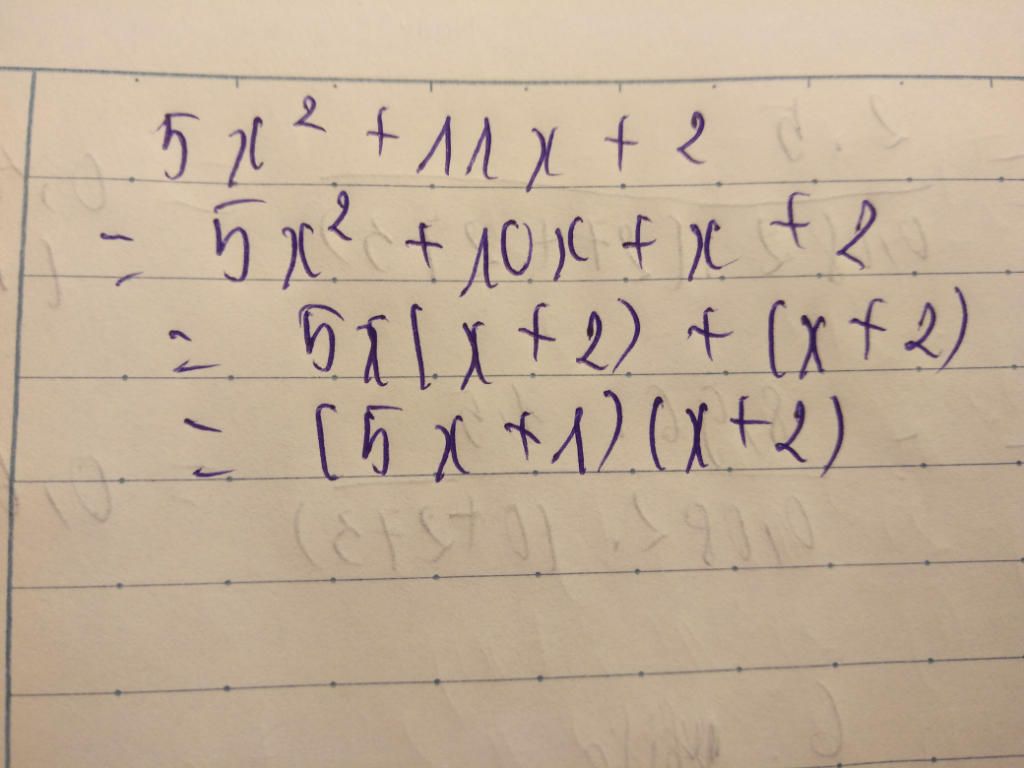 5x² + 11x + 2
= 5x² + 10x + x + 2
= 5x(x + 2) + (x + 2)
= (5x + 1)(x + 2)